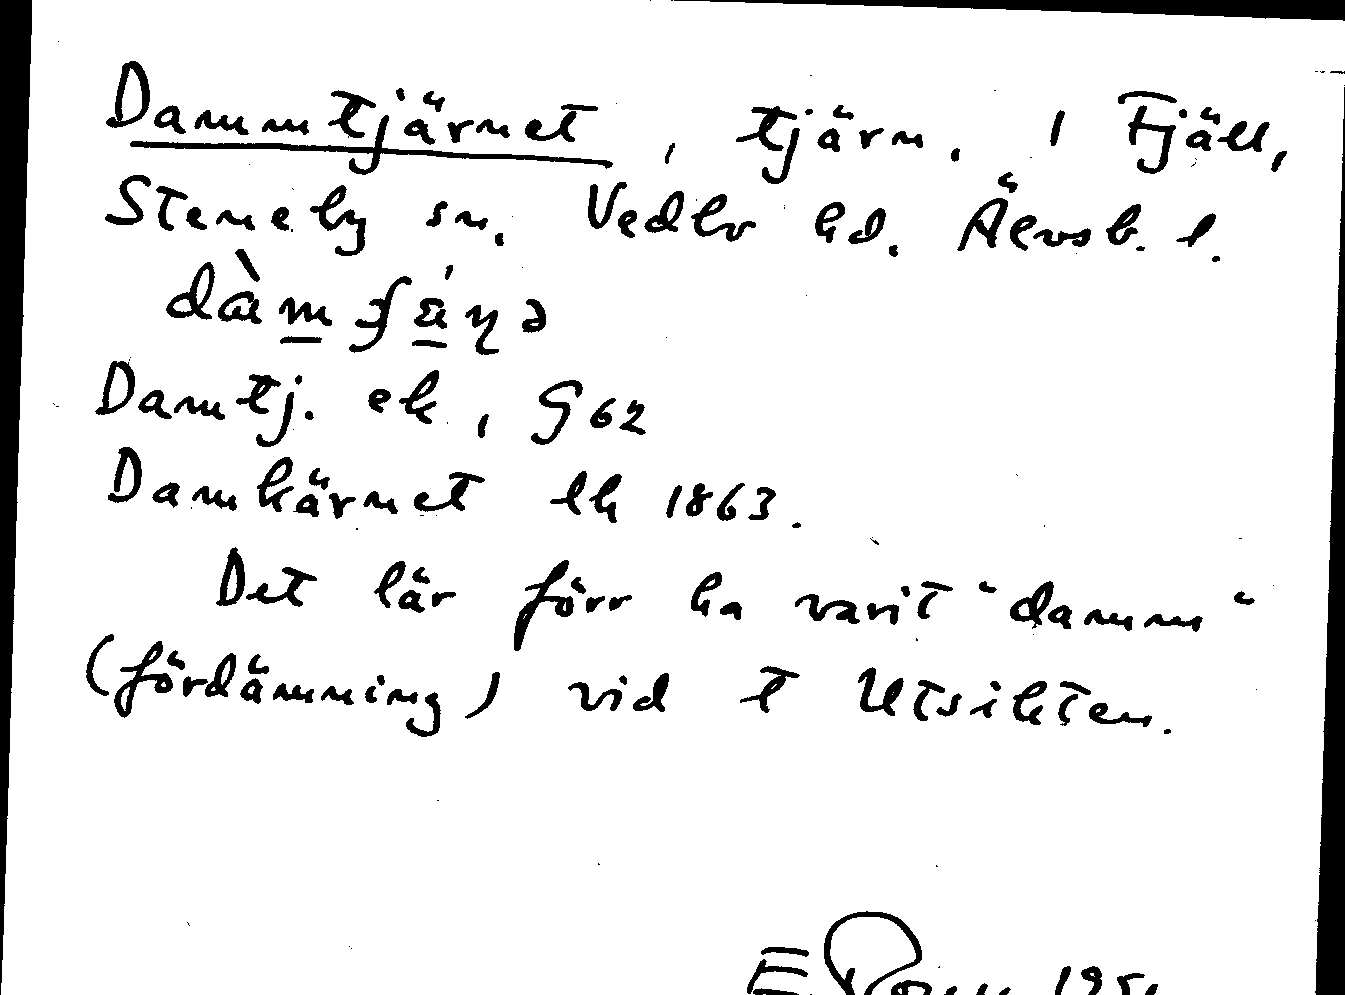 Dammtjärnet, tjärn. 1 Fjäll,
Steneby sn. Vedbo hd. Älvsb. l.
Damtj. ek, G 62
Damkärnet lk 1863.
Det lär förr ha varit "damm"
(fördämning) vid t Utsikten.
E